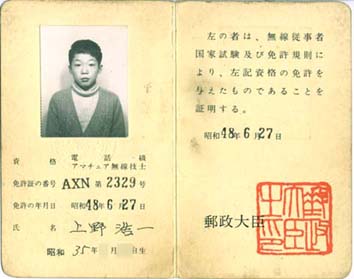 資格 電話級
アマチュア無線技士
免許証の番号 AXN 第 2329 号
免許の年月日 昭和48年6月27日
氏名 上野浩一
昭和 35年 月 日生
左の者は、無線従事者
国家試験及び免許規則に
より、左記資格の免許を
与えたものであることを
証明する。
昭和48年6月27日
郵政大臣
郵政大臣之印